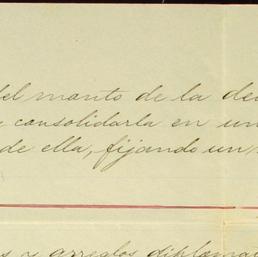 del manto de la de
consolidarla en un
de ella, fijando un
s y arreglos diploma